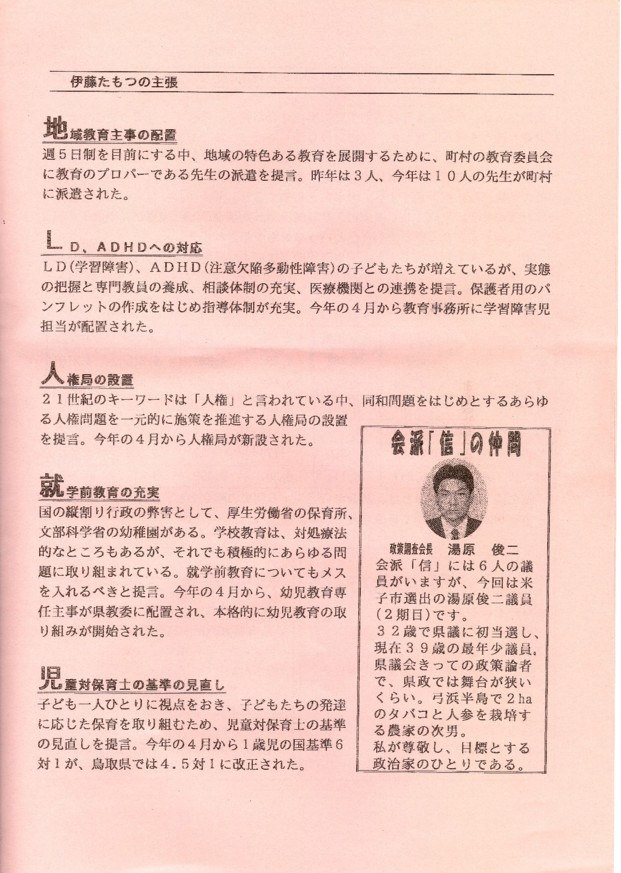 伊藤たもつの主張
地域教育主事の配置
週5日制を目前にする中、地域の特色ある教育を展開するために、町村の教育委員会
に教育のプロバーである先生の派遣を提言。昨年は3人、今年は10人の先生が町村
に派遣された。
LD、ADHDへの対応
LD(学習障害)、ADHD(注意欠陥多動性障害)の子どもたちが増えているが、実態
の把握と専門教員の養成、相談体制の充実、医療機関との連携を提言。保護者用のパ
ンフレットの作成をはじめ指導体制が充実。今年の4月から教育事務所に学習障害児
担当が配置された。
人権局の設置
21世紀のキーワードは「人権」と言われている中、同和問題をはじめとするあらゆ
る人権問題を一元的に施策を推進する人権局の設置
を提言。今年の4月から人権局が新設された。
就学前教育の充実
国の縦割り行政の弊害として、厚生労働省の保育所、
文部科学省の幼稚園がある。学校教育は、対処療法
的なところもあるが、それでも積極的にあらゆる問
題に取り組まれている。就学前教育についてもメス
を入れるべきと提言。今年の4月から、幼児教育専
任主事が県教委に配置され、本格的に幼児教育の取
り組みが開始された。
児童対保育士の基準の見直し
子ども一人ひとりに視点をおき、子どもたちの発達
に応じた保育を取り組むため、児童対保育士の基準
の見直しを提言。今年の4月から1歳児の国基準6
対1が、鳥取県では4.5対1に改正された。
会派「信」の仲間
政策調査会長 湯原 俊二
会派「信」には6人の議
員がいますが、今回は米
子市選出の湯原俊二議員
(2期目)です。
32歳で県議に初当選し、
現在39歳の最年少議員。
県議会きっての政策論者
で、県政では舞台が狭い
くらい。弓浜半島で2ha
のタバコと人参を栽培す
る農家の次男。
私が尊敬し、目標とする
政治家のひとりである。